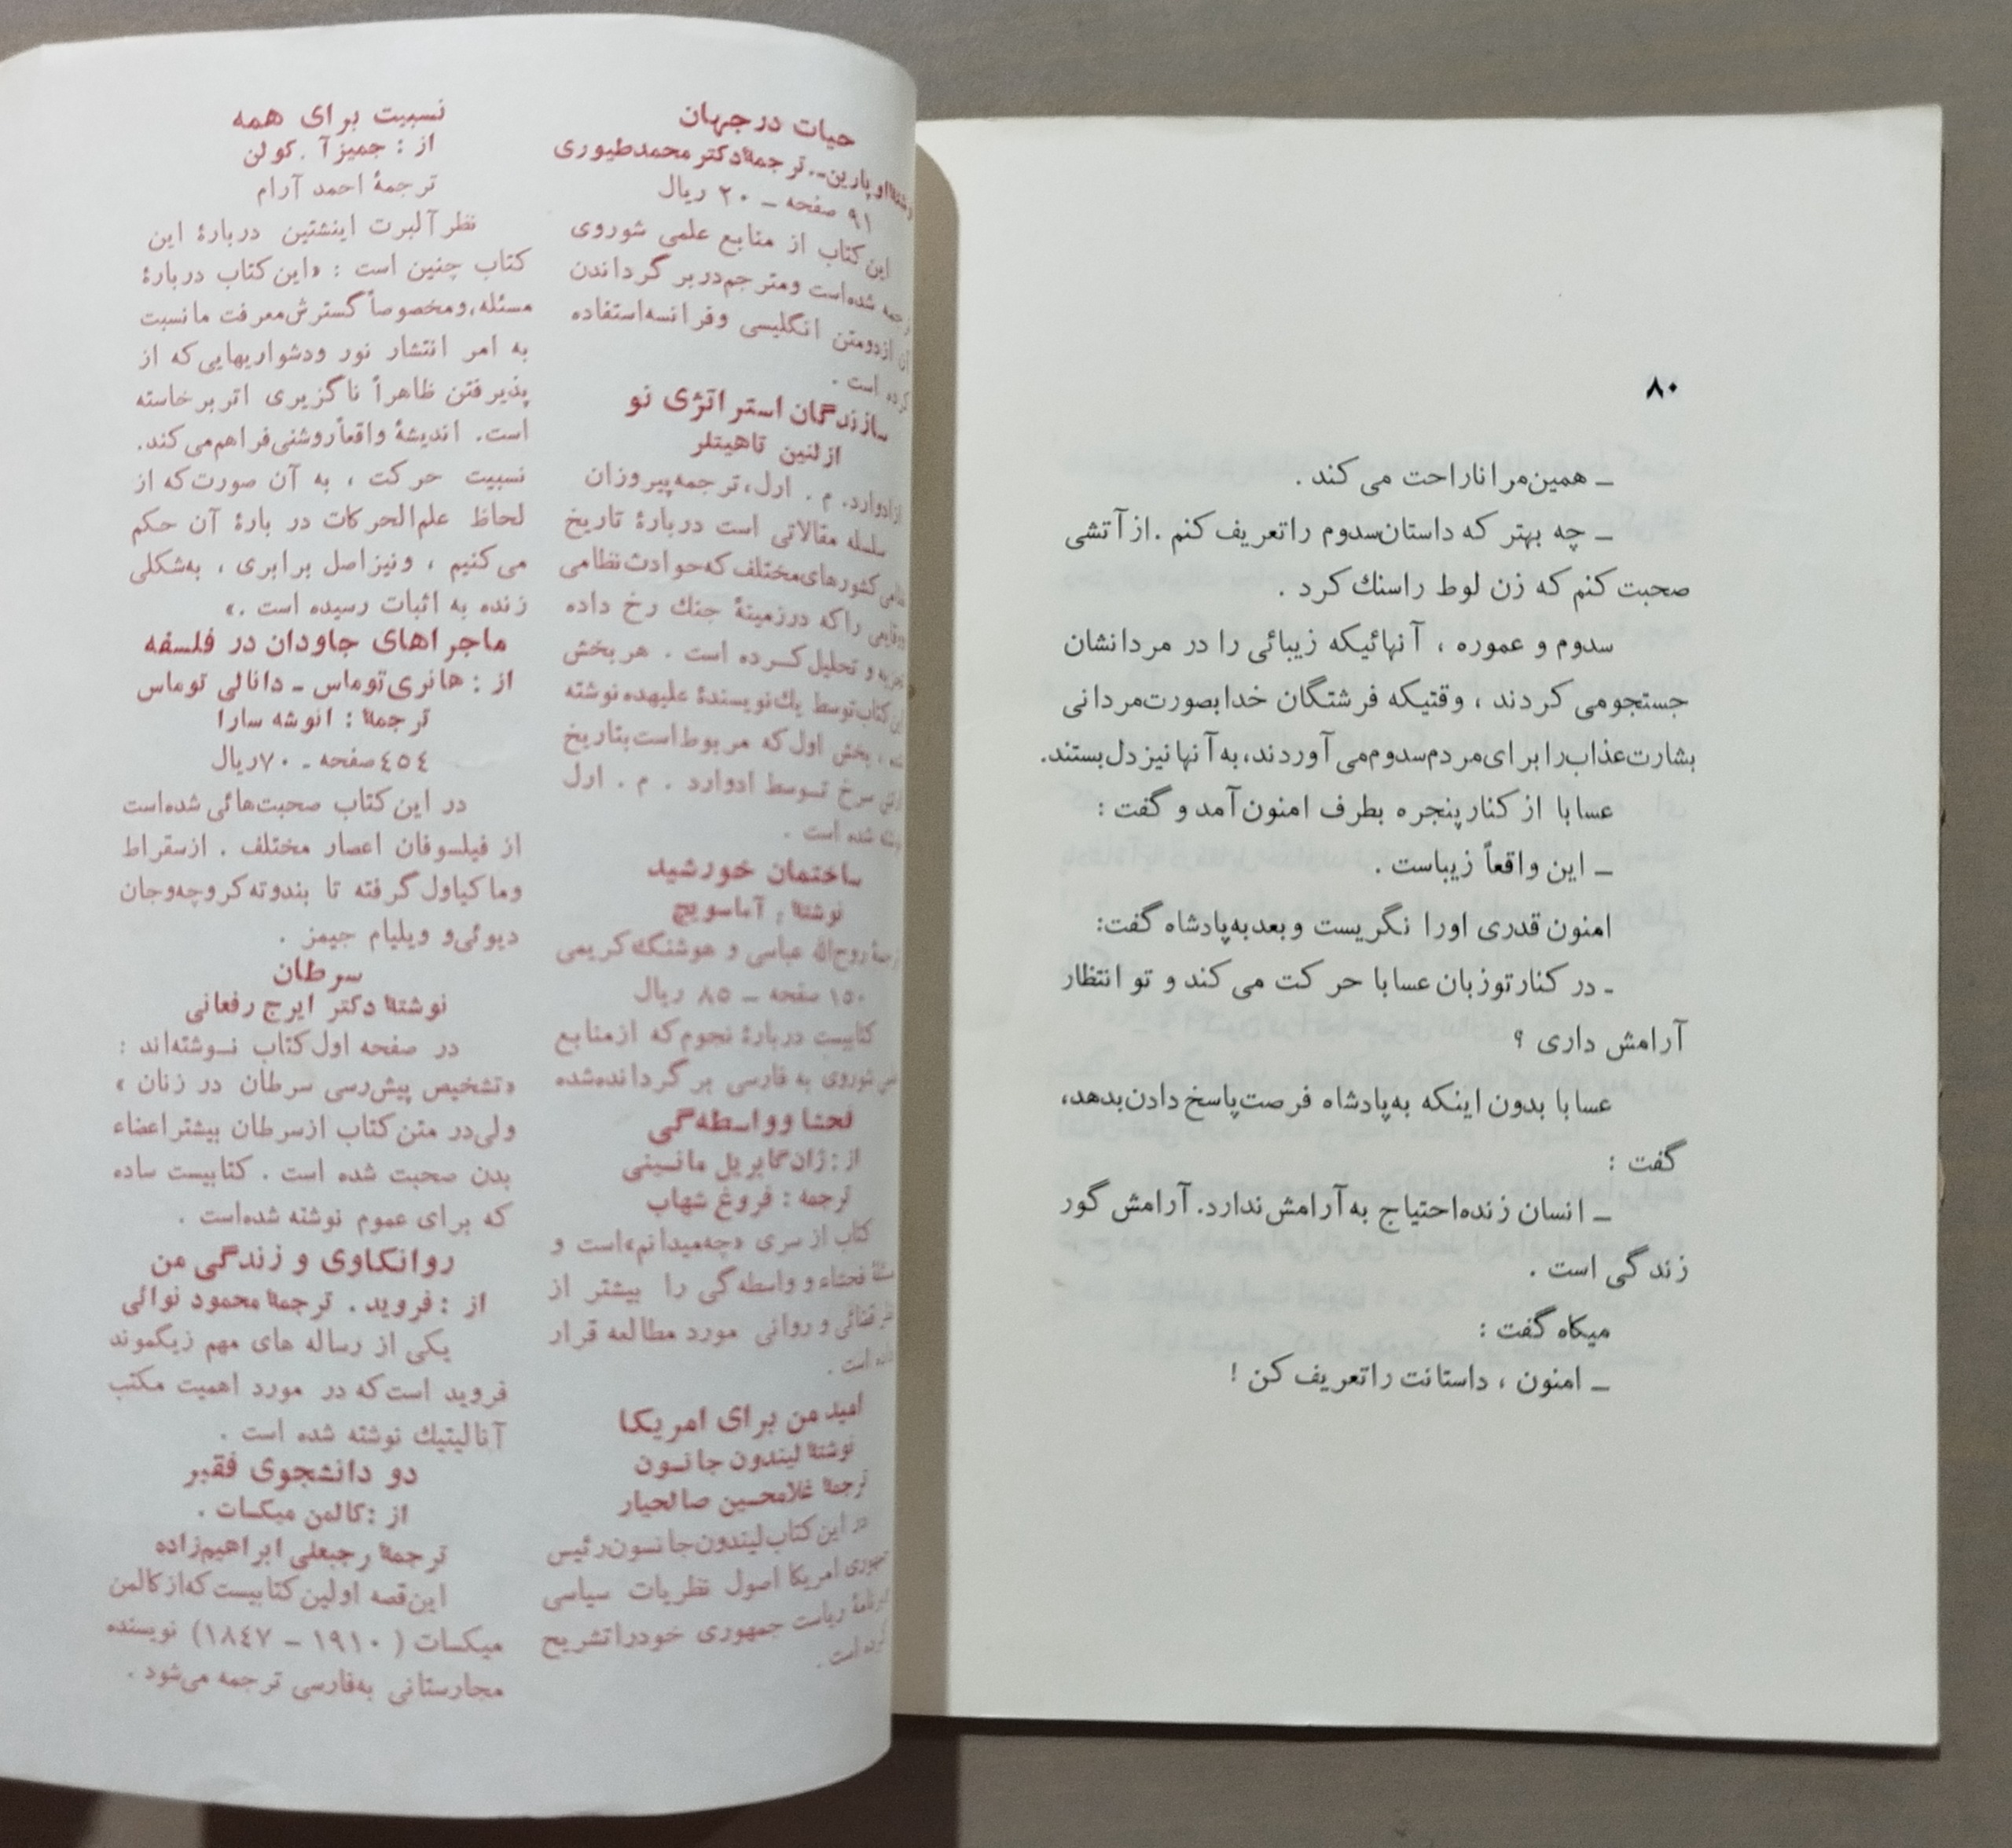 ۸۰
ـ همین‌مرا ناراحت می کند .
ـ چه بهتر که داستان‌سدوم راتعریف کنم .از آتشی
صحبت کنم که زن لوط راسنك کرد .
سدوم و عموره ، آنهائیکه زیبائی را در مردانشان
جستجومی کردند ، وقتیکه فرشتگان خدا بصورت‌مردانی
بشارت‌عذاب‌را برای‌مردم‌سدوم‌می آوردند،به آنها نیز دل‌بستند.
عسابا از کنار پنجره بطرف امنون‌آمد و گفت :
ـ این واقعاً زیباست .
امنون قدری اورا نگریست و بعدبه‌پادشاه گفت:
ـ در کنار توزبان عسابا حرکت می کند و تو انتظار
آرامش داری ؟
عسابا بدون اینکه به‌پادشاه فرصت‌پاسخ دادن‌بدهد،
گفت :
ـ انسان زنده‌احتیاج به آرامش‌ندارد. آرامش گور
زندگی است .
میکاه گفت :
ـ امنون ، داستانت راتعریف کن !
حیات درجهان
اوپارین-.ترجمهٔ‌دکتر محمدطیوری
۹۱ صفحه ـ ۲۰ ریال
این کتاب از منابع علمی شوروی
شده‌است ومترجم‌در بر گرداندن
آن ازدومتن انگلیسی وفرانسه‌استفاده
کرده است .
سازندگان استراتژی نو
ازلنین تاهیتلر
ازادوارد. م . ارل، ترجمه‌پیروزان
سلسله مقالاتی است دربارهٔ تاریخ
کشورهای‌مختلف که‌حوادث‌نظامی
راکه درزمینهٔ جنك رخ داده
و تحلیل‌کـرده است . هر بخش
این کتاب‌توسط یك‌نویسندهٔ علیهده‌نوشته
، بخش اول‌که مربوط‌است‌بتاریخ
سرخ تـوسط ادوارد . م . ارل
شده است .
ساختمان خورشید
نوشتهٔ ، آماسویچ
روح‌الله عباسی و هوشنگ‌کریمی
۱۵۰ صفحه ـ ۸۵ ریال
کتابیست دربارهٔ نجوم‌که ازمنابع
شوروی به فارسی بر گردانده‌شده
فحشا وواسطه‌گی
از : ژان‌گابریل مانسینی
ترجمه : فروغ شهاب
کتاب از سری «چه‌میدانم»است و
فحشاء و واسطه‌گی را بیشتر از
قضائی و روانی مورد مطالعه قرار
داده است .
امید من برای امریکا
نوشتهٔ لیندون جانـسون
ترجمهٔ غلامحسین صالحیار
در این‌کتاب‌لیندون‌جانسون‌رئیس
جمهوری امریکا اصول نظریات سیاسی
ریاست جمهوری خودراتشریح
کرده است .
نسبیت برای همه
از : جمیز آ . کولن
ترجمهٔ احمد آرام
نظر آلبرت اینشتین دربارهٔ این
کتاب چنین است : «این کتاب دربارهٔ
مسئله،ومخصوصاً گسترش‌معرفت مانسبت
به امر انتشار نور ودشواریهایی‌که از
پذیرفتن ظاهراً ناگزیری اتر برخاسته
است. اندیشهٔ واقعاً روشنی‌فراهم‌می‌کند.
نسبیت حرکت ، به آن صورت‌که از
لحاظ علم‌الحرکات در بارهٔ آن حکم
می‌کنیم ، ونیزاصل برابری ، به‌شکلی
زنده به اثبات رسیده است .»
ماجراهای جاودان در فلسفه
از : هانری‌توماس ـ دانالی توماس
ترجمهٔ : انوشه سارا
٤٥٤صفحه ـ ۷۰ریال
در این کتاب صحبت‌هائی شده‌است
از فیلسوفان اعصار مختلف . ازسقراط
وماکیاول گرفته تا بندوته‌کروچه‌وجان
دیوئی‌و ویلیام جیمز .
سرطان
نوشتهٔ دکتر ایرج رفعانی
در صفحه اول‌کتاب نـوشته‌اند :
«تشخیص پیش‌رسی سرطان در زنان »
ولی‌در متن کتاب ازسرطان بیشتراعضاء
بدن صحبت شده است . کتابیست ساده
که برای عموم نوشته شده‌است .
روانکاوی و زندگی من
از : فروید . ترجمهٔ محمود نوائی
یکی از رساله های مهم زیگموند
فروید است‌که در مورد اهمیت مکتب
آنالیتیك نوشته شده است .
دو دانشجوی فقیر
از :کالمن میکسات .
ترجمهٔ رجبعلی ابراهیم‌زاده
این‌قصه اولین کتابیست‌که‌از کالمن
میکسات ( ۱۹۱۰ ـ ۱۸٤۷) نویسنده
مجارستانی به‌فارسی ترجمه می‌شود .